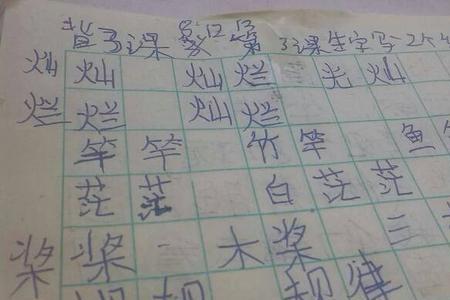 背3课 家汇 第3课生字写2个
灿 灿 灿 烂 光 灿
烂 烂 灿 烂
竿 竿 竹 竿 鱼
茫 茫 白 茫 茫
桨 桨 木 桨 三
规